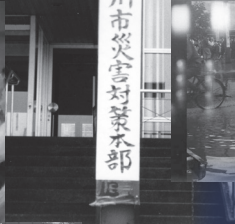 川市災害対策本部